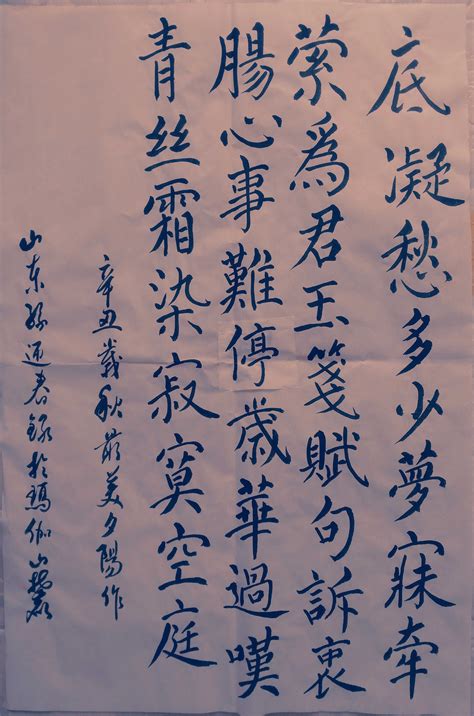 底凝愁多少夢寐牽
萦爲君玉箋賦句訴衷
腸心事難停歲華過嘆
青丝霜染寂寞空庭
辛丑歲秋最美夕陽作
山东孙迎春録於瑪伽山麓